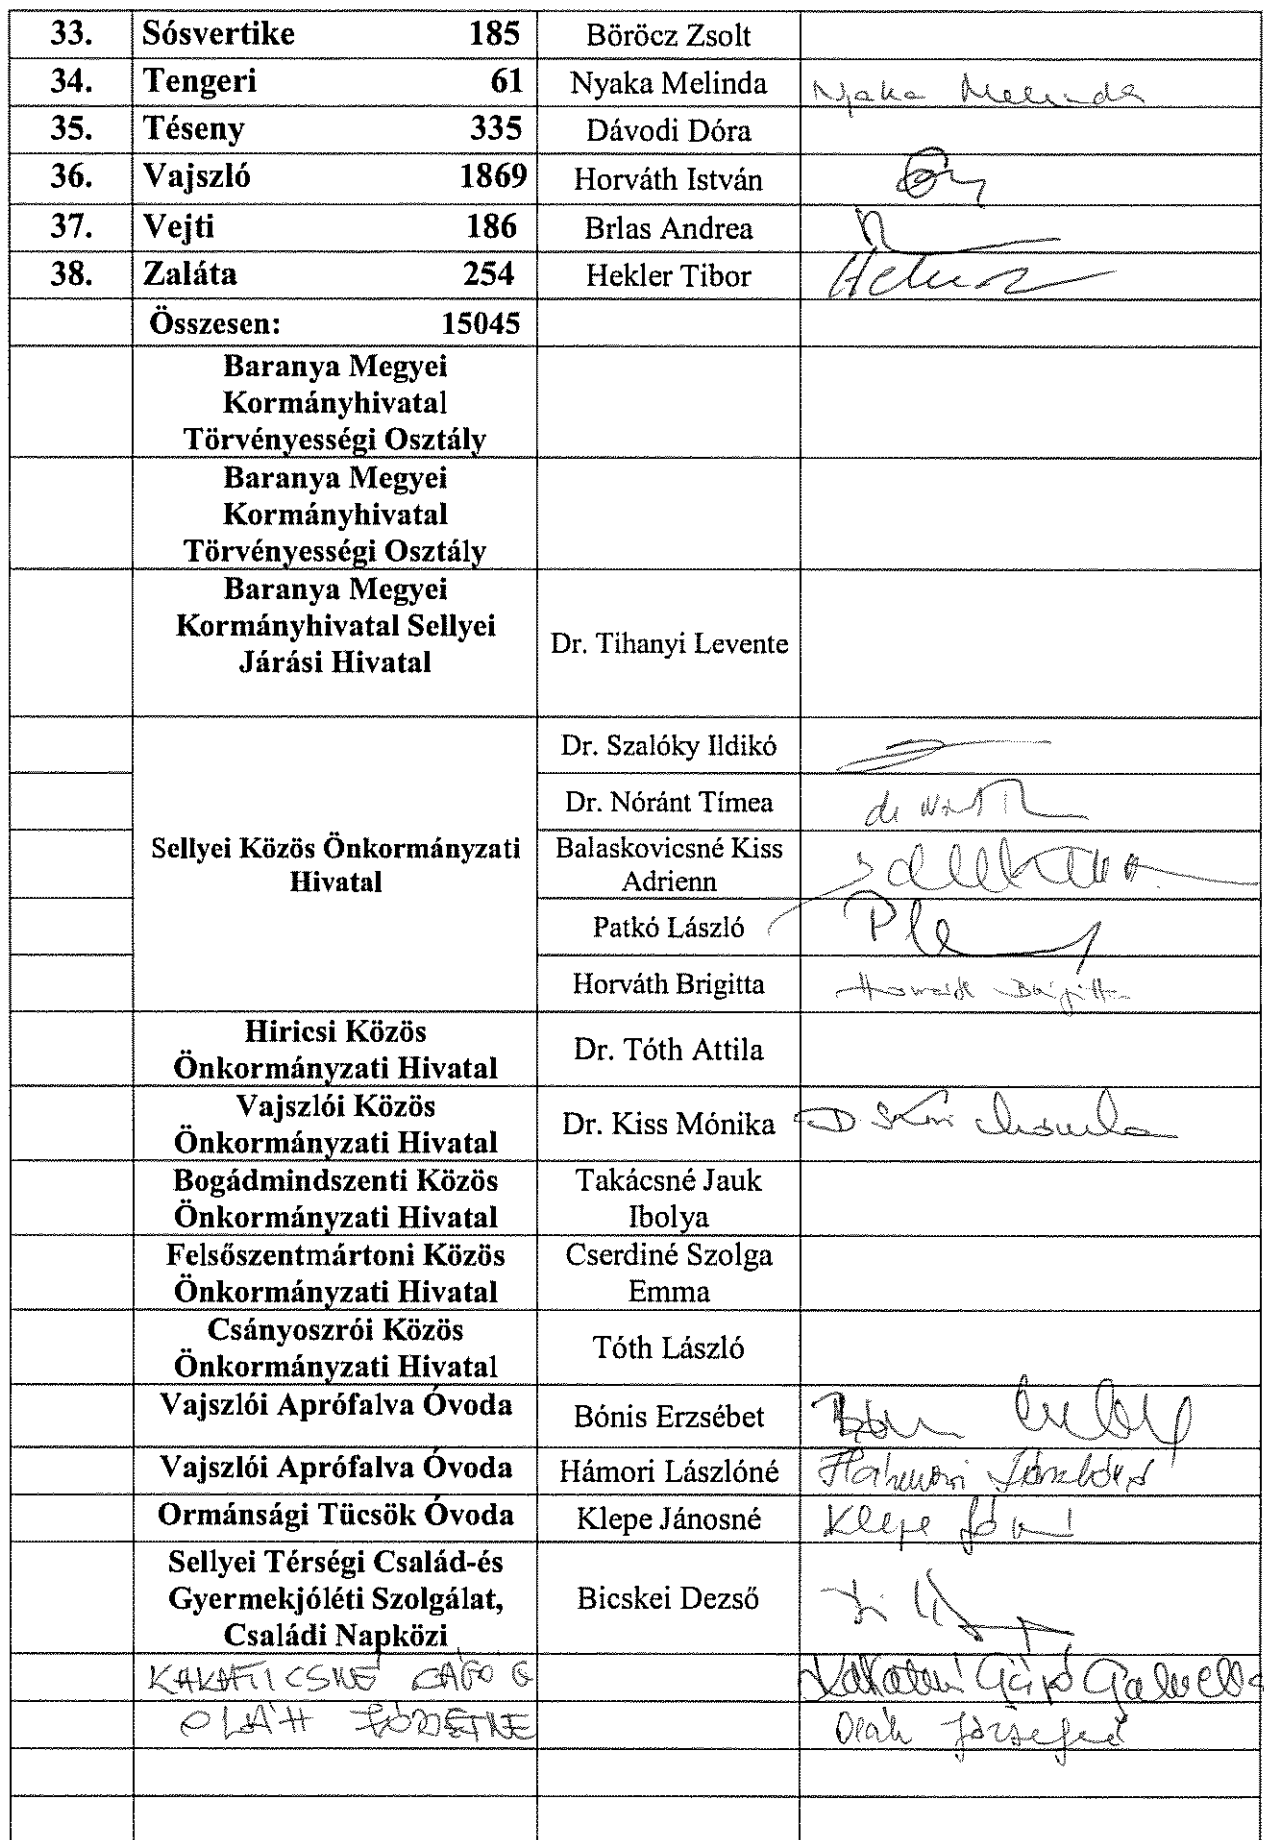 33. Sósvertike 185 Böröcz Zsolt
34. Tengeri 61 Nyaka Melinda Nyaka Melinda
35. Téseny 335 Dávodi Dóra
36. Vajszló 1869 Horváth István
37. Vejti 186 Brlas Andrea
38. Zaláta 254 Hekler Tibor
Összesen: 15045
Baranya Megyei
Kormányhivatal
Törvényességi Osztály
Baranya Megyei
Kormányhivatal
Törvényességi Osztály
Baranya Megyei
Kormányhivatal Sellyei
Járási Hivatal
Dr. Tihanyi Levente
Sellyei Közös Önkormányzati
Hivatal
Dr. Szalóky Ildikó
Dr. Nóránt Tímea
Balaskovicsné Kiss
Adrienn
Patkó László
Horváth Brigitta Horváth Brigitta
Hiricsi Közös
Önkormányzati Hivatal
Dr. Tóth Attila
Vajszlói Közös
Önkormányzati Hivatal
Dr. Kiss Mónika
Bogádmindszenti Közös
Önkormányzati Hivatal
Takácsné Jauk
Ibolya
Felsőszentmártoni Közös
Önkormányzati Hivatal
Cserdiné Szolga
Emma
Csányoszrói Közös
Önkormányzati Hivatal
Tóth László
Vajszlói Aprófalva Óvoda Bónis Erzsébet
Vajszlói Aprófalva Óvoda Hámori Lászlóné Hámori Lászlóné
Ormánsági Tücsök Óvoda Klepe Jánosné Klepe
Sellyei Térségi Család-és
Gyermekjóléti Szolgálat,
Családi Napközi
Bicskei Dezső
OLÁH Oláh Józsefné